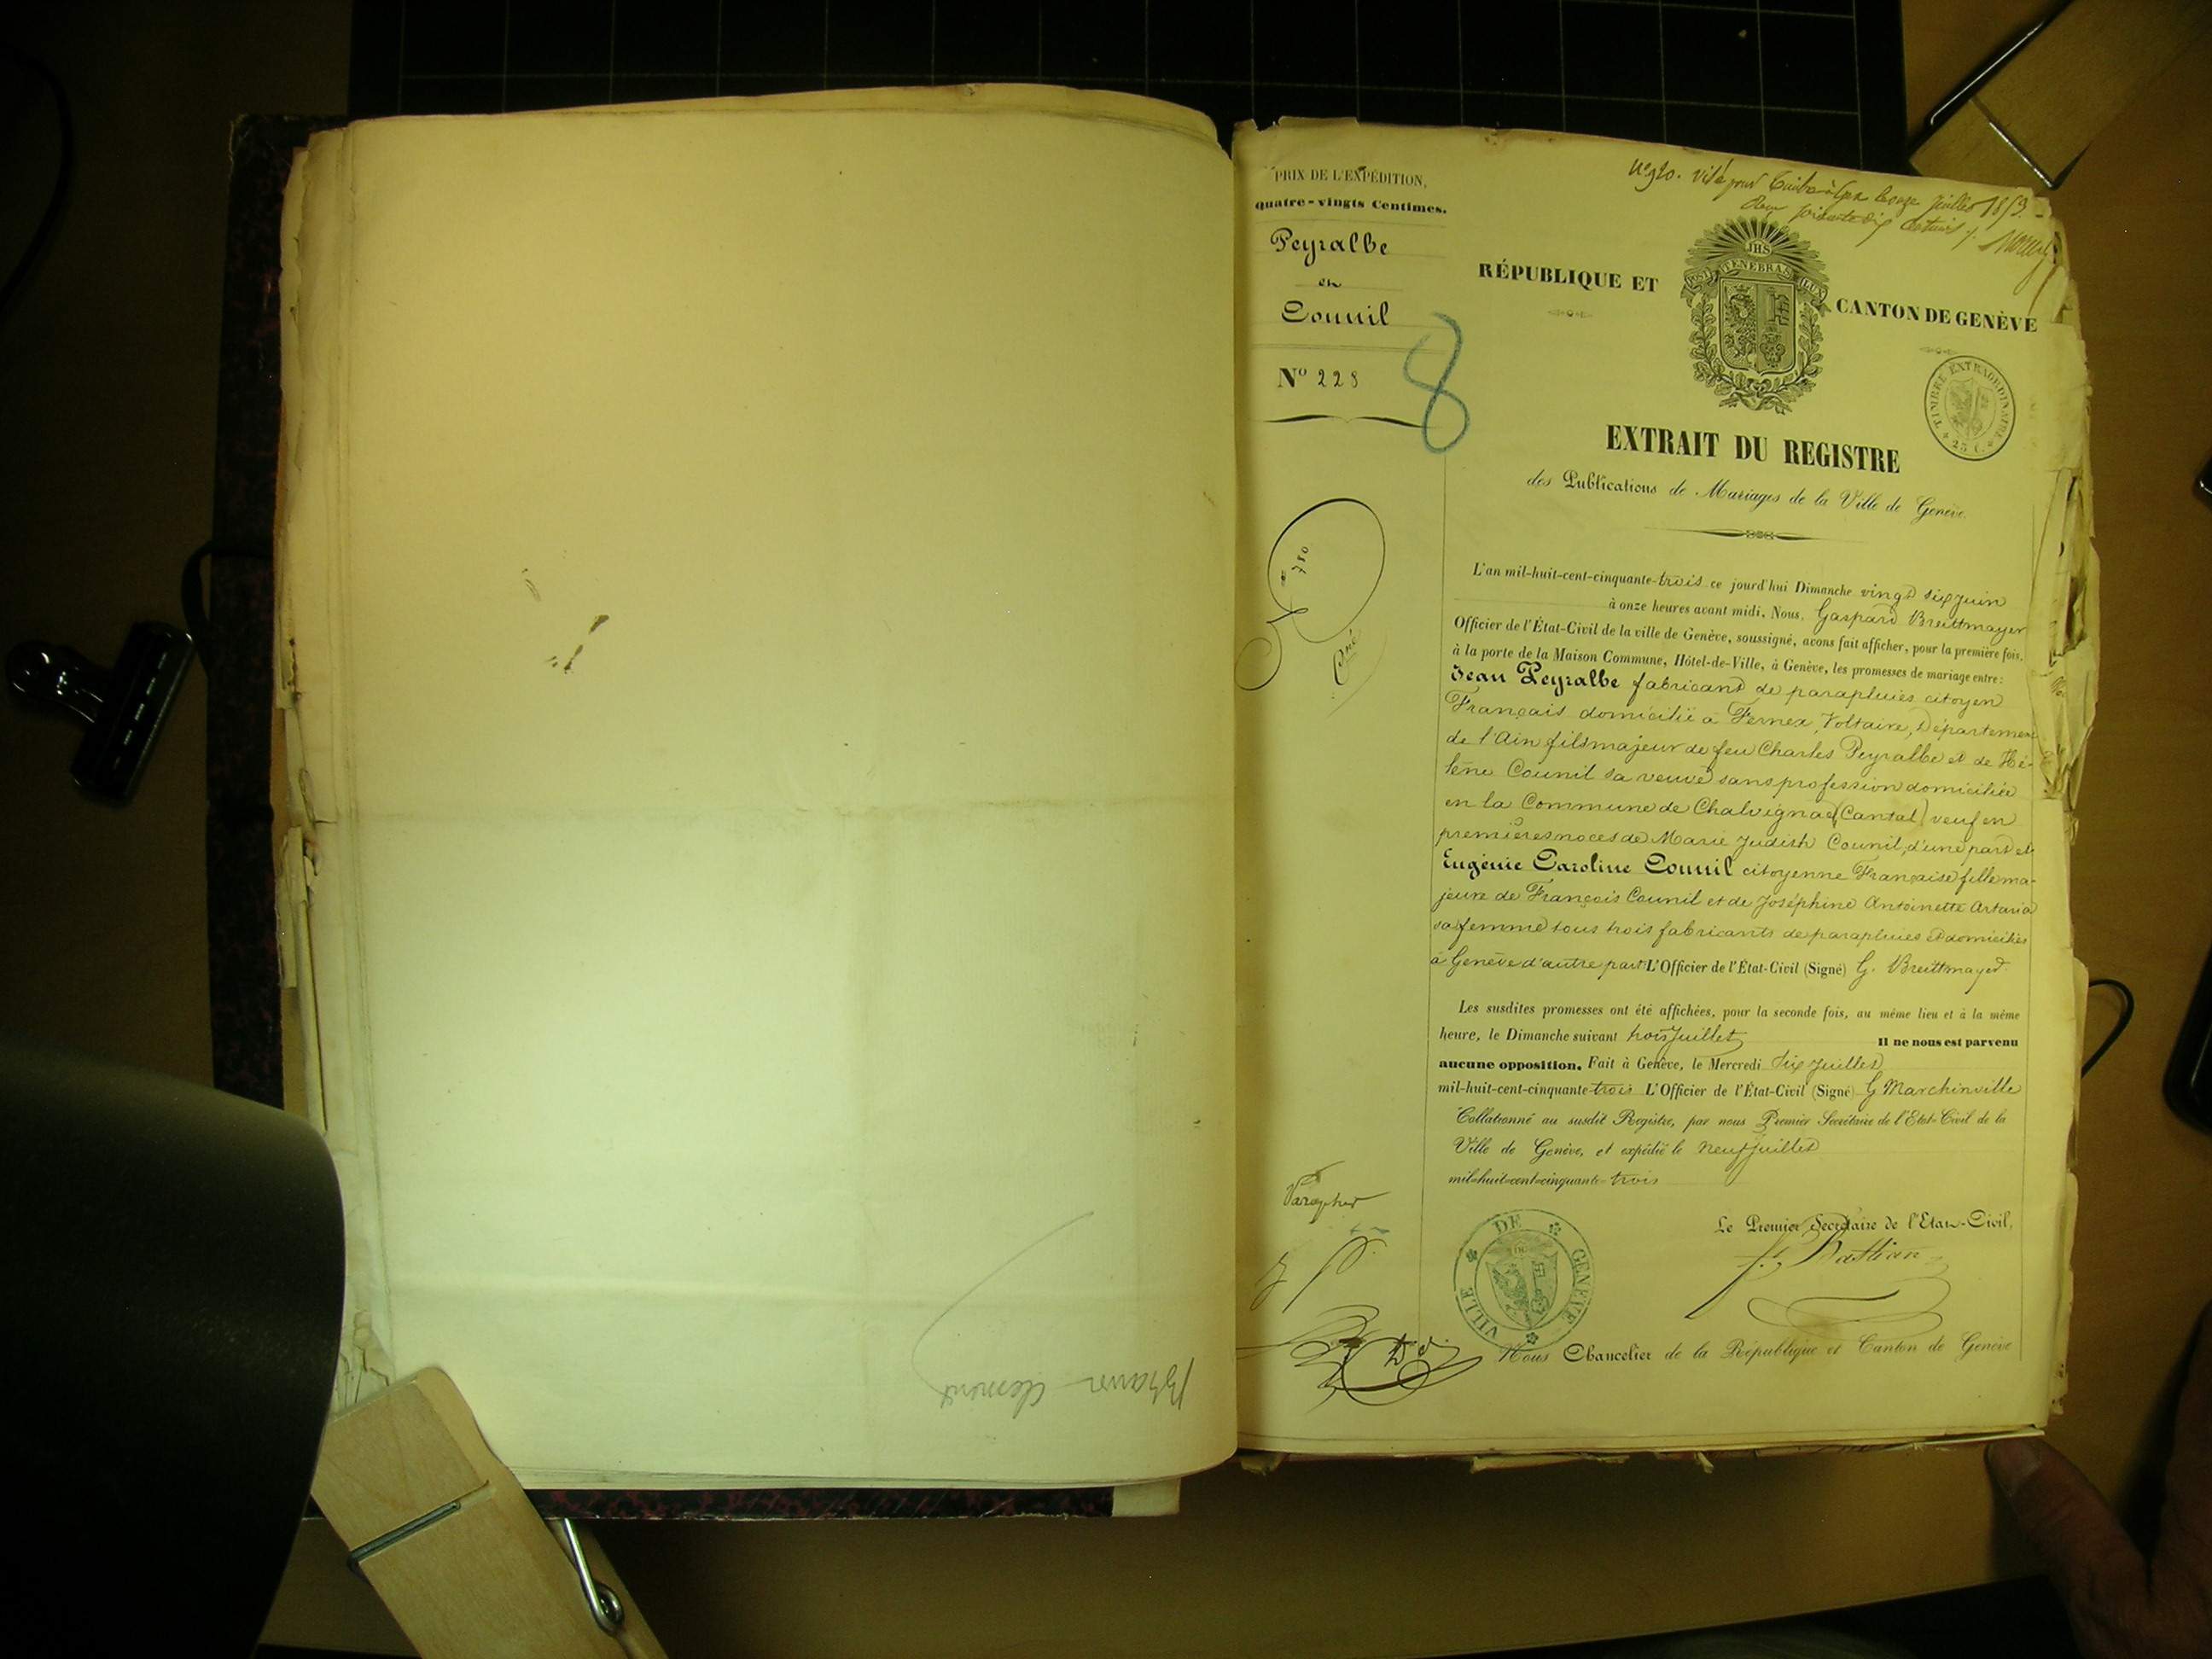 PRIX DE L'EXPÉDITION,
Quatre-vingts Centimes.
Peyralbe
et
Counil
No 228
8
780
Cné
Parapher
No 920. Visé pour timbre à Gex le onze juillet 1853.
Reçu soixante dix centimes
RÉPUBLIQUE ET CANTON DE GENÈVE
JHS
POST TENEBRAS LUX
TIMBRE EXTRAORDINAIRE
25 C.
EXTRAIT DU REGISTRE
des Publications de Mariages de la Ville de Genève.
L'an mil-huit-cent-cinquante-trois ce jourd'hui Dimanche vingt six juin
à onze heures avant midi, Nous, Gaspard Breittmayer
Officier de l'État-Civil de la ville de Genève, soussigné, avons fait afficher, pour la première fois,
à la porte de la Maison Commune, Hôtel-de-Ville, à Genève, les promesses de mariage entre:
Jean Peyralbe fabricant de parapluies citoyen
Français domicilié à Fernex, Voltaire, Département
de l'Ain fils majeur de feu Charles Peyralbe et de Hé-
lène Counil sa veuve sans profession domiciliée
en la Commune de Chalvignac (Cantal) veuf en
premières noces de Marie Judith Counil, d'une part et
Eugénie Caroline Counil citoyenne Française fille ma-
jeure de François Counil et de Joséphine Antoinette Artaria
sa femme tous trois fabricants de parapluies et domiciliés
à Genève d'autre part L'Officier de l'État-Civil (Signé) G. Breittmayer.
Les susdites promesses ont été affichées, pour la seconde fois, au même lieu et à la même
heure, le Dimanche suivant trois Juillet Il ne nous est parvenu
aucune opposition. Fait à Genève, le Mercredi Six Juillet
mil-huit-cent-cinquante-trois L'Officier de l'État-Civil (Signé) G Marchinville
Collationné au susdit Registre, par nous Premier Secrétaire de l'Etat-Civil de la
Ville de Genève, et expédié le neuf juillet
mil-huit-cent-cinquante-trois
Le Premier Secrétaire de l'Etat-Civil,
VILLE DE GENÈVE
Nous Chancelier de la République et Canton de Genève
Clement